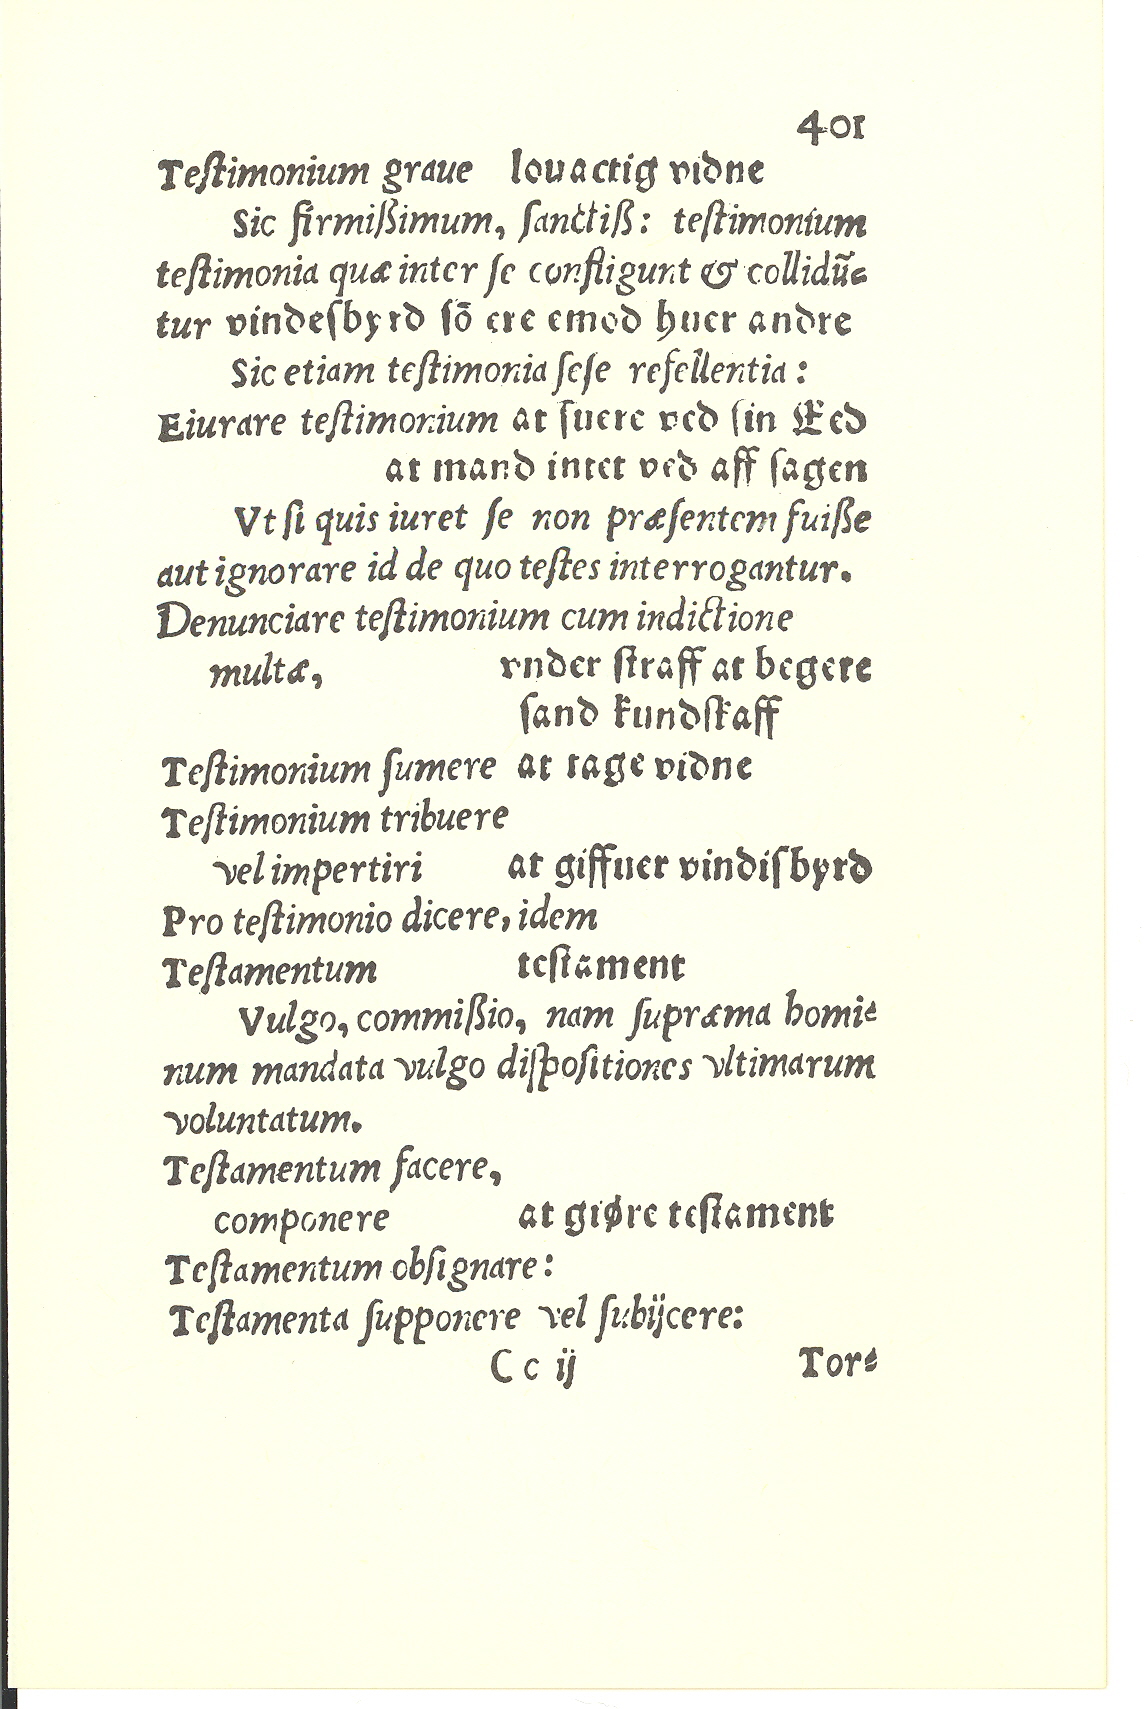 401
Teſtimonium graue louactig vidne
Sic firmißimum, ſanctiß: teſtimonium
teſtimonia quæ inter ſe confligunt & collidũ-
tur vindeſbyrd ſõ ere emod huer andre
Sic etiam teſtimonia ſeſe refellentia:
Eiurare teſtimonium at ſuere ved ſin Eed
at mand intet ved aff ſagen
Vt ſi quis iuret ſe non præſentem fuiße
aut ignorare id de quo teſtes interrogantur.
Denunciare teſtimonium cum indictione
multæ, vnder ſtraff at begere
ſand kundſkaff
Teſtimonium ſumere at tage vidne
Teſtimonium tribuere
vel impertiri at giffuer vindiſbyrd
Pro teſtimonio dicere, idem
Teſtamentum teſtament
Vulgo, commißio, nam ſupræma homi-
num mandata vulgo diſpoſitiones vltimarum
voluntatum.
Teſtamentum facere,
componere at giøre teſtament
Teſtamentum obſignare:
Teſtamenta ſupponere vel ſubijcere:
C c ij Tor-